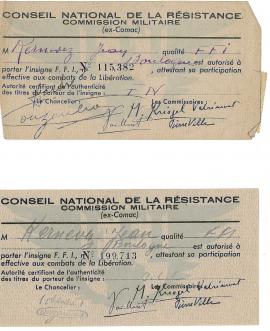 CONSEIL NATIONAL DE LA RÉSISTANCE
COMMISSION MILITAIRE
(ex-Comac)
M Jean qualité F F I
Boulogne est autorisé à
porter l'insigne F. F. I., N° 115,382 , attestant sa participation
effective aux combats de la Libération.
Autorité certifiant de l'authenticité
des titres du porteur de l'insigne :
Le Chancelier : Les Commissaires :
CONSEIL NATIONAL DE LA RÉSISTANCE
COMMISSION MILITAIRE
(ex-Comac)
M Jean qualité FFI
Boulogne est autorisé à
porter l'insigne F. F. I., N° 199,713 , attestant sa participation
effective aux combats de la Libération.
Autorité certifiant de l'authenticité
des titres du porteur de l'insigne :
Le Chancelier : Les Commissaires :